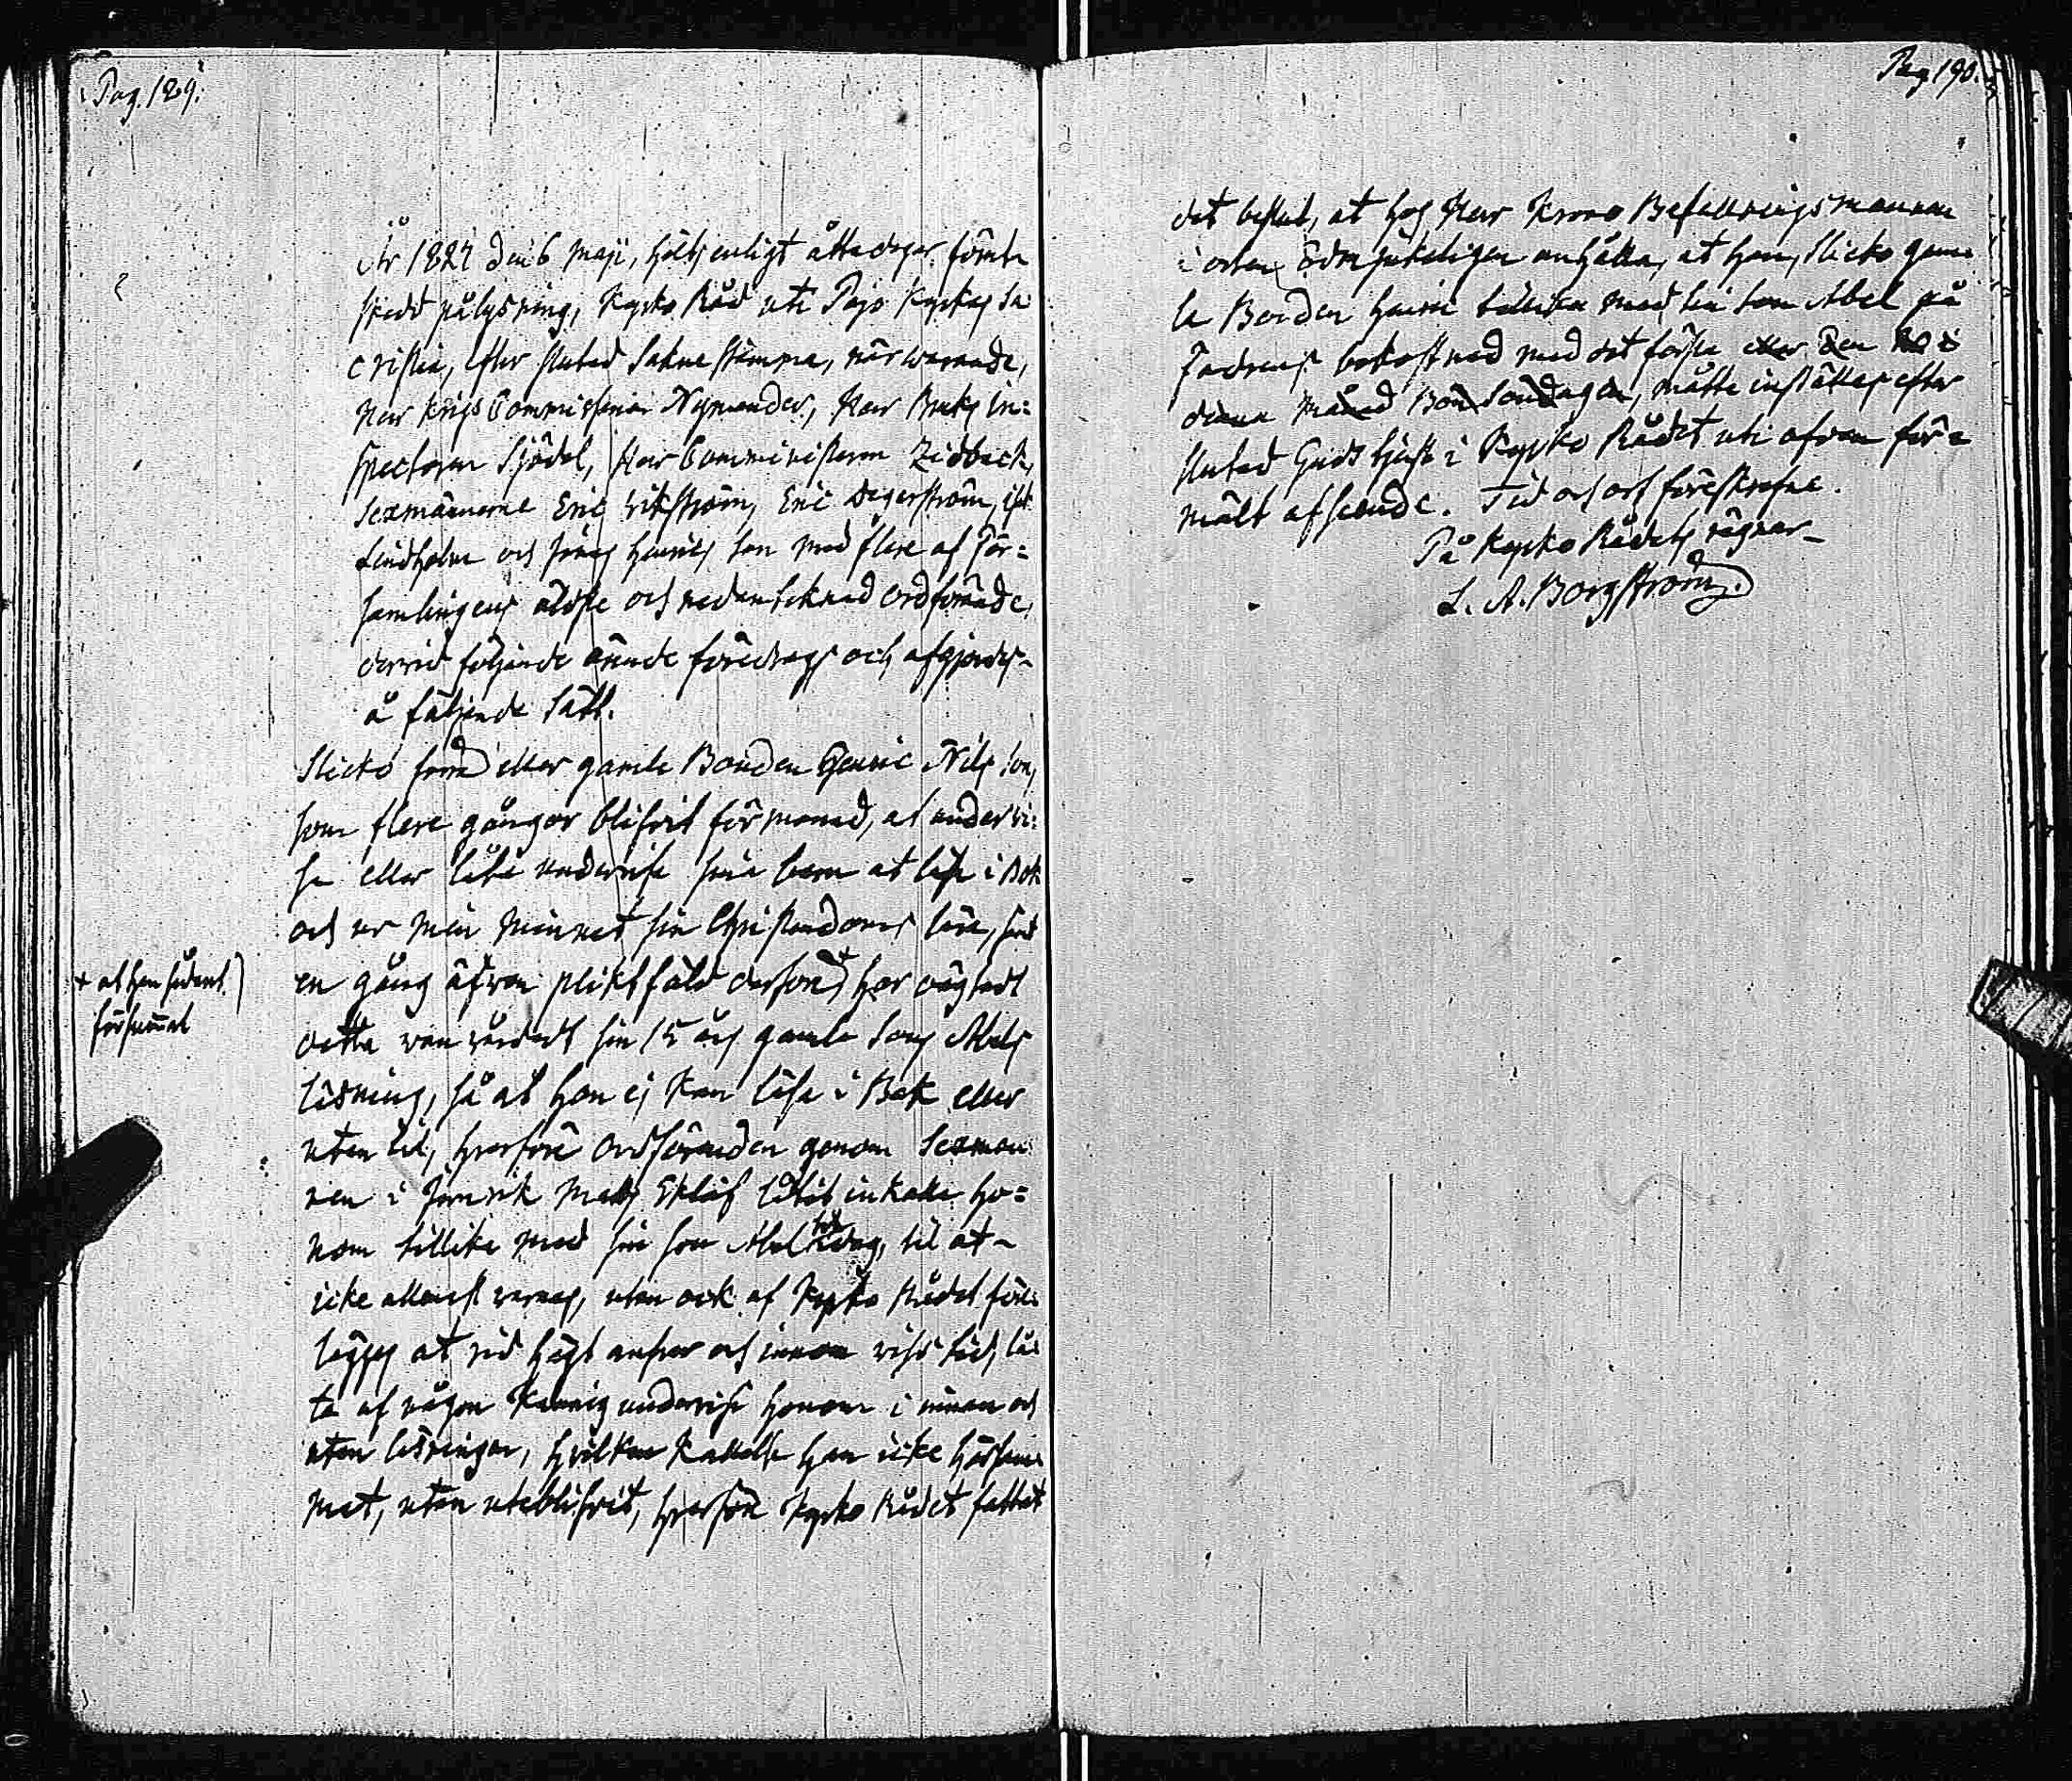 Pag. 189.
År 1827 den 6 Maji, hölts enligt åtta dagar förut
skedd pålysning, Kyrko Råd uti Pojo Kyrkas Sa
cristia, efter slutad Sokne stämma, närwarande,
Herr Krigs Commissarien Nymander, Herr Bruks in=
spectoren Sjödal, Herr Comministern Zidbäck,
Sexmännerne Eric Wikström, Eric Degerström,
Lindholm och Jonas Henrics son med flere af För=
samlingens äldste och nedanteknad ordförande,
derwid följande ärende föredrogs och afgjordes
å följande sätt.
Slicko gamle Bonden Henric Nils son,
som flere gångor blifvit förmanad, at underwi=
sa eller låta underwisa sina barn at läsa i Bok
och ur minnet sin Christendoms lära, samt
en gång äfven pliktfäld derföre, har
+ at han sådant
försummat
detta wanwårdat sin 15 års gamla Sons Abels
läsning, så at han ej kan läsa i Bok eller
utan til, hvarföre Ordföranden genom Sexman=
nen i Mats Eklöf låtit inkalla ho=
nom tillika med sin son Abel i dag, til at
icke allenast warnas, utan ock af Kyrko Rådet före
läggas at wid högt answar och innom wiss tid, lå=
ta af någon kunnig underwisa honom i innan och
utan läsningen, hvilken kallelse han icke hörsam=
mat, utan uteblifvit, hvarföre Kyrko Rådet fattat
Pag. 190.
det beslut, at hos Herr Krono Befallningsmannen
i orten ödmjukeligen anhålla, at han, Slicko gam=
la Bonden Henric tillika med sin son Abel på
Fadrens bekostnad med det första eller den
denna månad Bön Söndagen, måtte inställas efter
slutad Gudstjenst i Kyrko Rådet uti ofvan för=
mält afseende. Tid och ort föreskrefne.
På Kyrko Rådets wägnar
L. A. Borgström